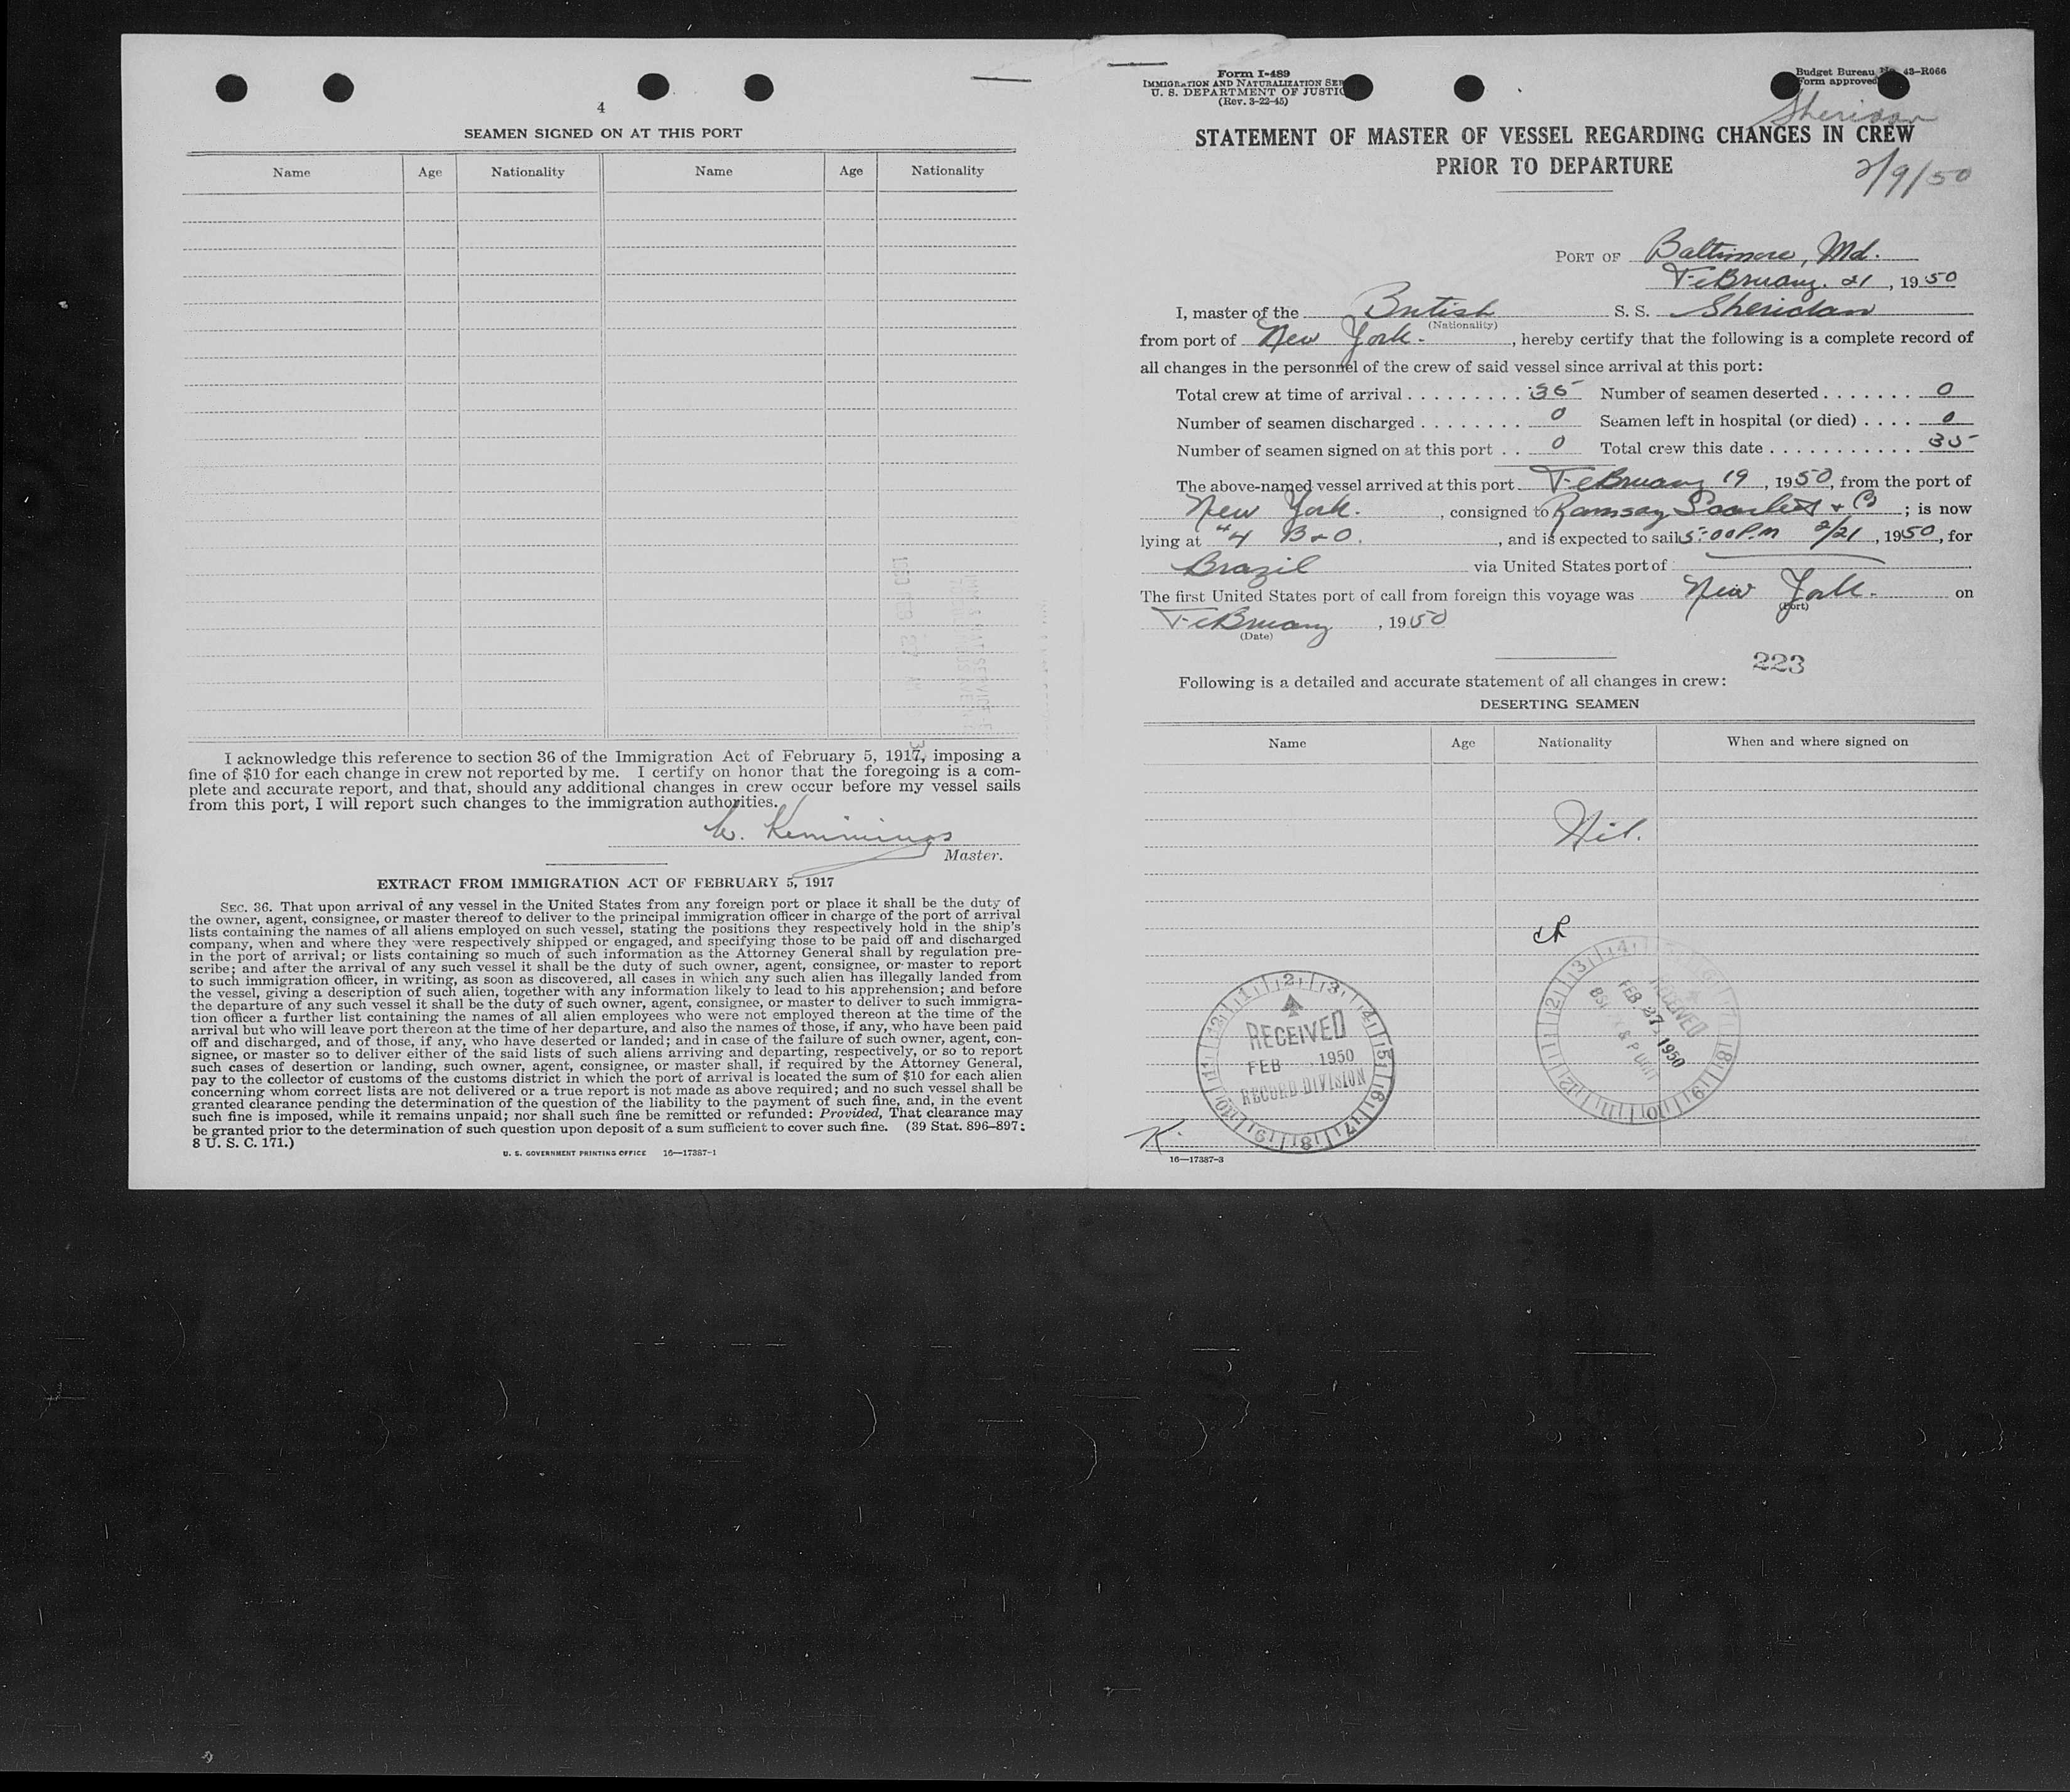 4
SEAMEN SIGNED ON AT THIS PORT
Name Age Nationality Name Age Nationality
I acknowledge this reference to section 36 of the Immigration Act of February 5, 1917, imposing a
fine of $10 for each change in crew not reported by me. I certify on honor that the foregoing is a com-
plete and accurate report, and that, should any additional changes in crew occur before my vessel sails
from this port, I will report such changes to the immigration authorities.
Kemmings
Master.
EXTRACT FROM IMMIGRATION ACT OF FEBRUARY 5, 1917
SEC. 36. That upon arrival of any vessel in the United States from any foreign port or place it shall be the duty of
the owner, agent, consignee, or master thereof to deliver to the principal immigration officer in charge of the port of arrival
lists containing the names of all aliens employed on such vessel, stating the positions they respectively hold in the ship's
company, when and where they were respectively shipped or engaged, and specifying those to be paid off and discharged
in the port of arrival; or lists containing so much of such information as the Attorney General shall by regulation pre-
scribe; and after the arrival of any such vessel it shall be the duty of such owner, agent, consignee, or master to report
to such immigration officer, in writing, as soon as discovered, all cases in which any such alien has illegally landed from
the vessel, giving a description of such alien, together with any information likely to lead to his apprehension; and before
the departure of any such vessel it shall be the duty of such owner, agent, consignee, or master to deliver to such immigra-
tion officer a further list containing the names of all alien employees who were not employed thereon at the time of the
arrival but who will leave port thereon at the time of her departure, and also the names of those, if any, who have been paid
off and discharged, and of those, if any, who have deserted or landed; and in case of the failure of such owner, agent, con-
signee, or master so to deliver either of the said lists of such aliens arriving and departing, respectively, or so to report
such cases of desertion or landing, such owner, agent, consignee, or master shall, if required by the Attorney General,
pay to the collector of customs of the customs district in which the port of arrival is located the sum of $10 for each alien
concerning whom correct lists are not delivered or a true report is not made as above required; and no such vessel shall be
granted clearance pending the determination of the question of the liability to the payment of such fine, and, in the event
such fine is imposed, while it remains unpaid; nor shall such fine be remitted or refunded: Provided, That clearance may
be granted prior to the determination of such question upon deposit of a sum sufficient to cover such fine. (39 Stat. 896–897;
8 U. S. C. 171.)
U. S. GOVERNMENT PRINTING OFFICE 16—17387-1
Form I-489
IMMIGRATION AND NATURALIZATION SER
U. S. DEPARTMENT OF JUSTIC
(Rev. 3-22-45)
Budget Bureau No. 43-R066
Form approved
Sheridan
STATEMENT OF MASTER OF VESSEL REGARDING CHANGES IN CREW
PRIOR TO DEPARTURE
2/9/50
PORT OF Baltimore, Md.
February 21, 1950
I, master of the British S. S. Sheridan
(Nationality)
from port of New York., hereby certify that the following is a complete record of
all changes in the personnel of the crew of said vessel since arrival at this port:
Total crew at time of arrival . . . . . . . . . 35 Number of seamen deserted . . . . . . . 0
Number of seamen discharged . . . . . . . . 0 Seamen left in hospital (or died) . . . . 0
Number of seamen signed on at this port . . 0 Total crew this date . . . . . . . . . . . 35
The above-named vessel arrived at this port February 19, 1950, from the port of
New York., consigned to Ramsay Scarlett & Co; is now
lying at #4 B & O., and is expected to sail 5:00 P.M 2/21, 1950, for
Brazil via United States port of
The first United States port of call from foreign this voyage was New York. on
(Port)
February, 1950
(Date)
223
Following is a detailed and accurate statement of all changes in crew:
DESERTING SEAMEN
Name Age Nationality When and where signed on
Nil.
RECEIVED
FEB 1950
RECORD DIVISION
RECEIVED
FEB 27 1950
K.
16—17387-3